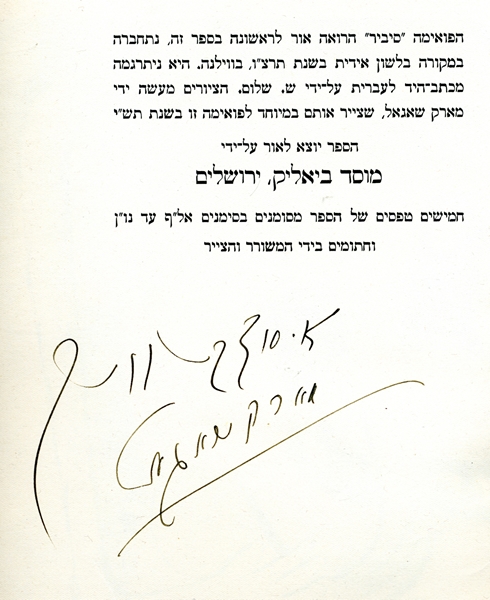 הפואימה "סיביר" הרואה אור לראשונה בספר זה, נתחברה
במקורה בלשון אידית בשנת תרצ"ו, בווילנה. היא ניתרגמה
מכתב־היד לעברית על־ידי ש. שלום. הציורים מעשה ידי
מארק שאגאל, שצייר אותם במיוחד לפואימה זו בשנת תש"י
הספר יוצא לאור על־ידי
מוסד ביאליק, ירושלים
חמישים טפסים של הספר מסומנים בסימנים אל"ף עד נו"ן
וחתומים בידי המשורר והצייר
א. סוצקעווער
מארק שאגאל